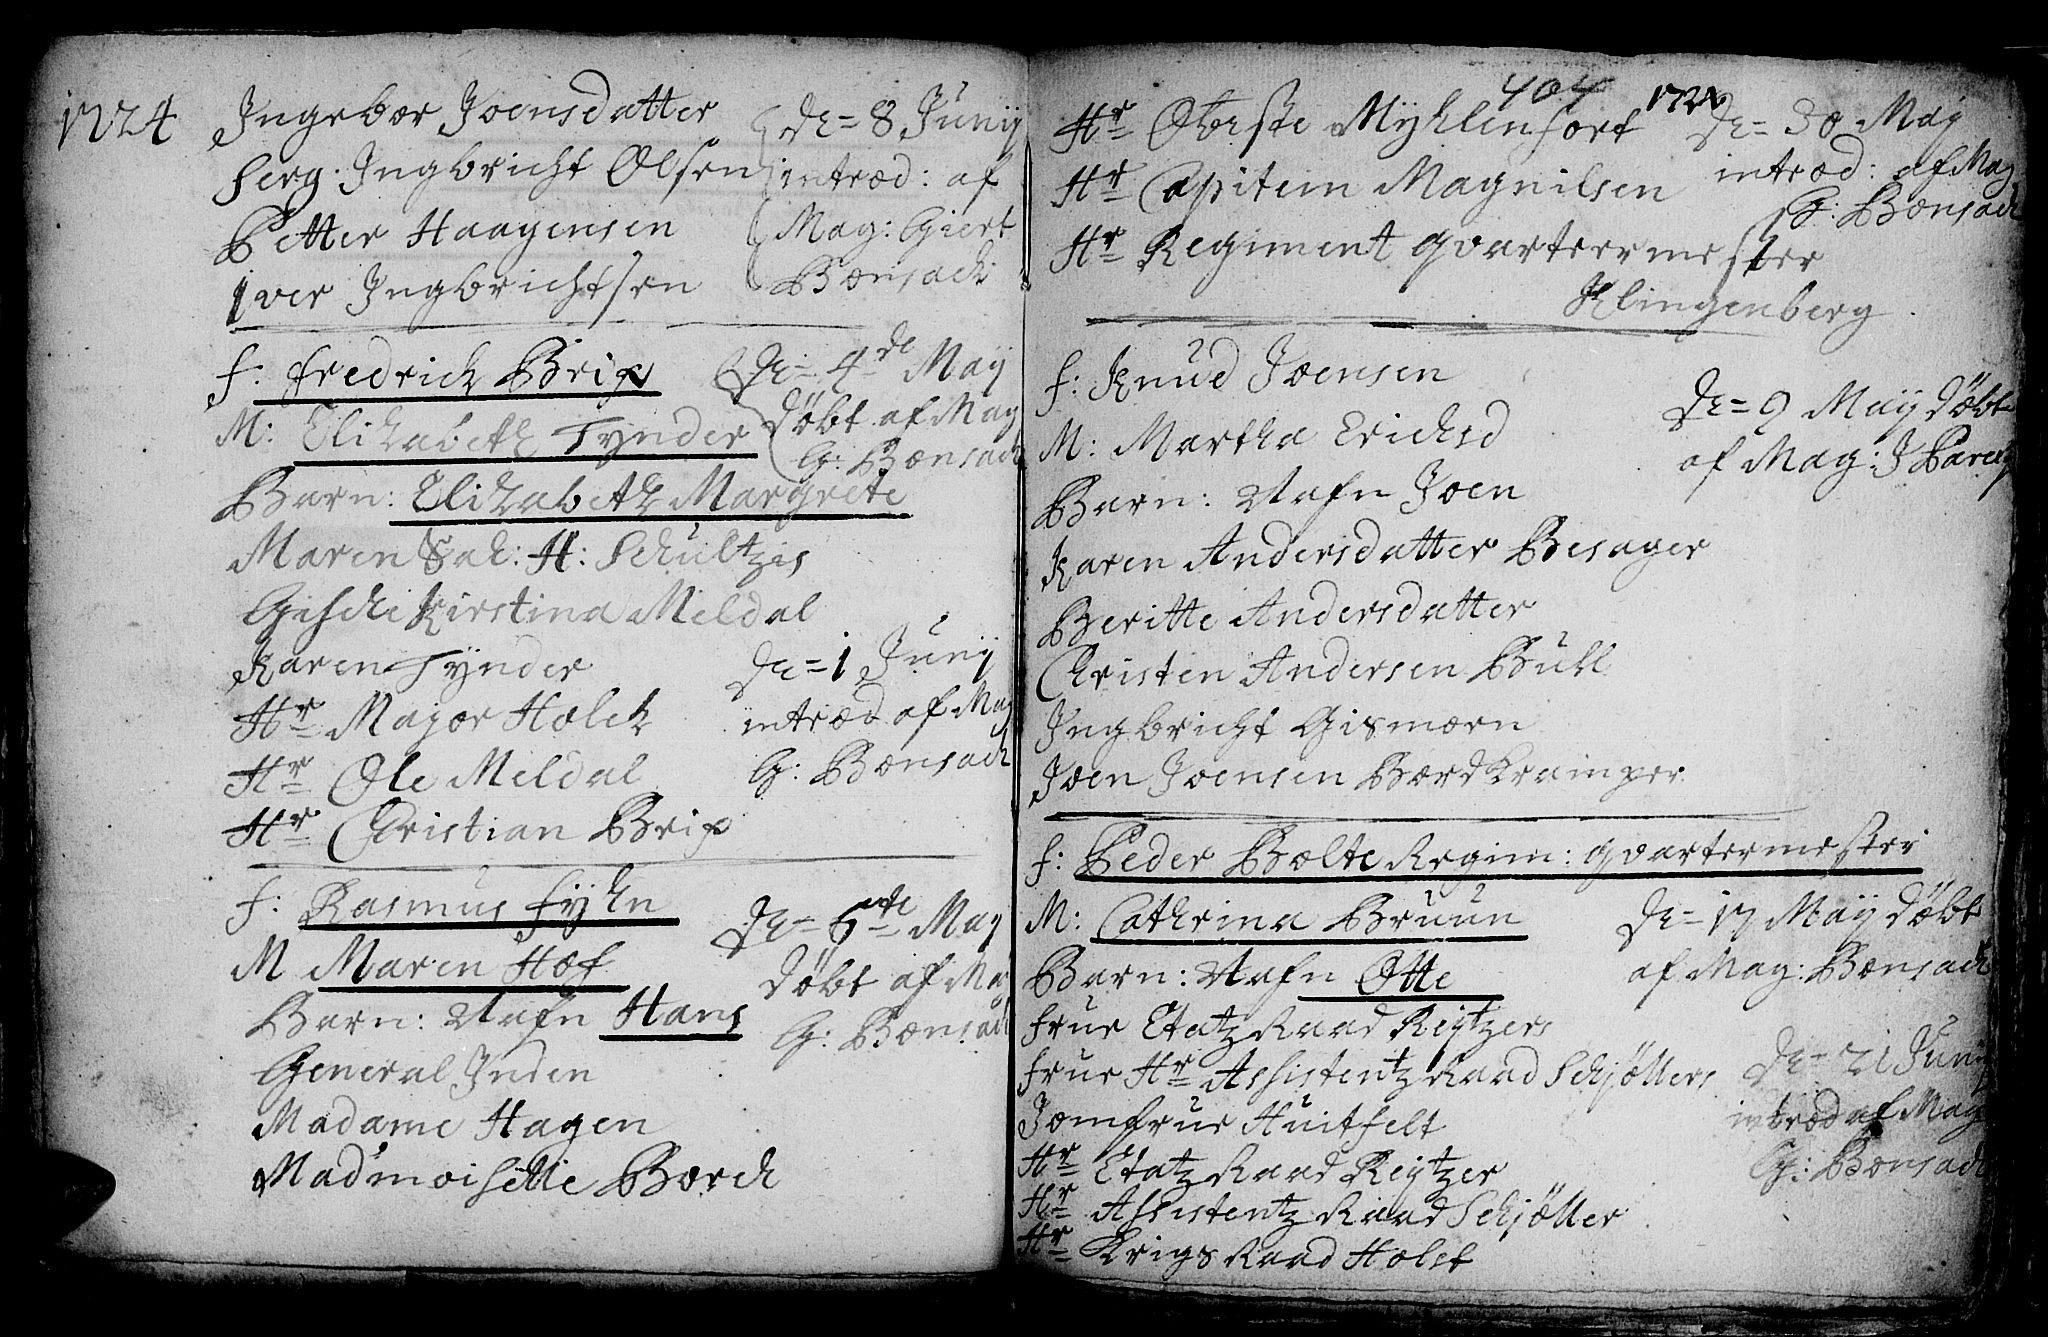 1724
Ingebor Joensdatter
Serg. Ingbricht Olsen
Petter Haagensen
Iver Ingbrichtsen
De = 8 Junij
introd: af
Mag: Giert
Bonsach
f: Fredrich Brix
M: Elizabeth Tynder
Barn: Elizabeth Margrete
Maren Sal: H: Schultzis
Gischi Kirstina Meldal
Karen Tynder
Hr Major Holck
Hr Ole Meldal
Hr Christian Brix
De = 4de Maij
döbt af Mag
G: Bonsach
De = 1 Junij
introd af Mag
G: Bonsach
f: Rasmus Fyhn
M Maren Hof
Barn: Nafn Hans
General Inden
Madame Hagen
Mad'moiselle Borch
De = 6te May
döbt af Mag
G: Bonsach
404
1724
Hr Oberste Myhlenfort
Hr Capitein Magnilsen
Hr Regiment qvarteermester
Klingenberg
De = 30 May
introd: af Mag
G: Bonsach
f: Knud Joensen
M: Martha Erichsd
Barn: Nafn Joen
Karen Andersdatter Besager
Beritte Andersdatter
Christen Andersen Bull
Ingbricht Gismorn
Joen Joensen Bordkramper
De = 9 Maij döbt
af Mag: J Parelij
f: Peder Bolte Regim: qvartermester
M: Cathrina Bruun
Barn: Nafn Otte
Frue Etatz Raad Reijtzers
Frue Hr Assistentz Raad Schjöllers
Jomfrue Huitfelt
Hr Etatz Raad Reijtzer
Hr Assistentz Raad Schjöller
Hr Krigs Raad Holst
De = 17 Maij döbt
af Mag: Bonsach
De = 21 Junij
introd af Mag
G: Bonsach